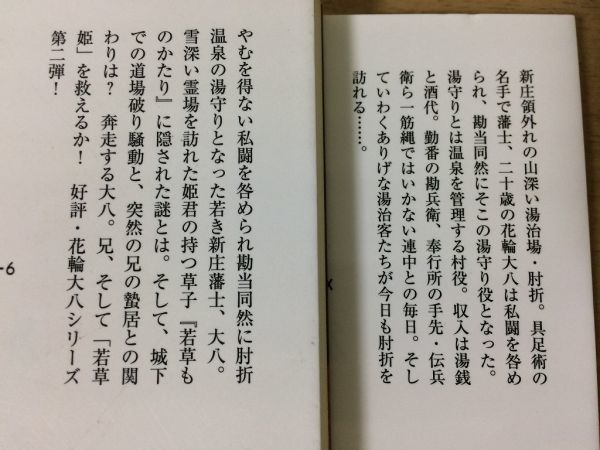 新庄領外れの山深い湯治場・肘折。具足術の
名手で藩士、二十歳の花輪大八は私闘を咎め
られ、勘当同然にそこの湯守り役となった。
湯守りとは温泉を管理する村役。収入は湯銭
と酒代。勤番の勘兵衛、奉行所の手先・伝兵
衛ら一筋縄ではいかない連中との毎日。そし
ていわくありげな湯治客たちが今日も肘折を
訪れる……。
やむを得ない私闘を咎められ勘当同然に肘折
温泉の湯守りとなった若き新庄藩士、大八。
雪深い霊場を訪れた姫君の持つ草子『若草も
のかたり』に隠された謎とは。そして、城下
での道場破り騒動と、突然の兄の蟄居との関
わりは？　奔走する大八。兄、そして「若草
姫」を救えるか！　好評・花輪大八シリーズ
第二弾！
-6
X